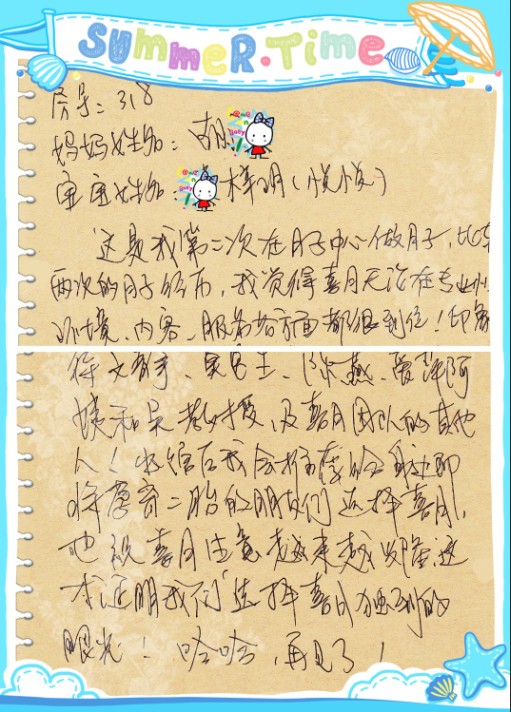 SUMMER.TIME
房号：318
妈妈姓名：胡
宝宝姓名 梓玥(悦悦)
这是我第二次在月子中心做月子，比较
两次的月子经历，我觉得喜月无论在专业
环境、内容、服务等方面都很到位！印象
徐文 、吴 、陈燕、 阿
姨和吴教授，及喜月团队的其他
人！出馆后我会推荐给身边即
将孕育二胎的朋友们选择喜月，
也祝喜月生意越来越兴隆，这
才证明我们选择喜月独到的
眼光！哈哈，再见了！